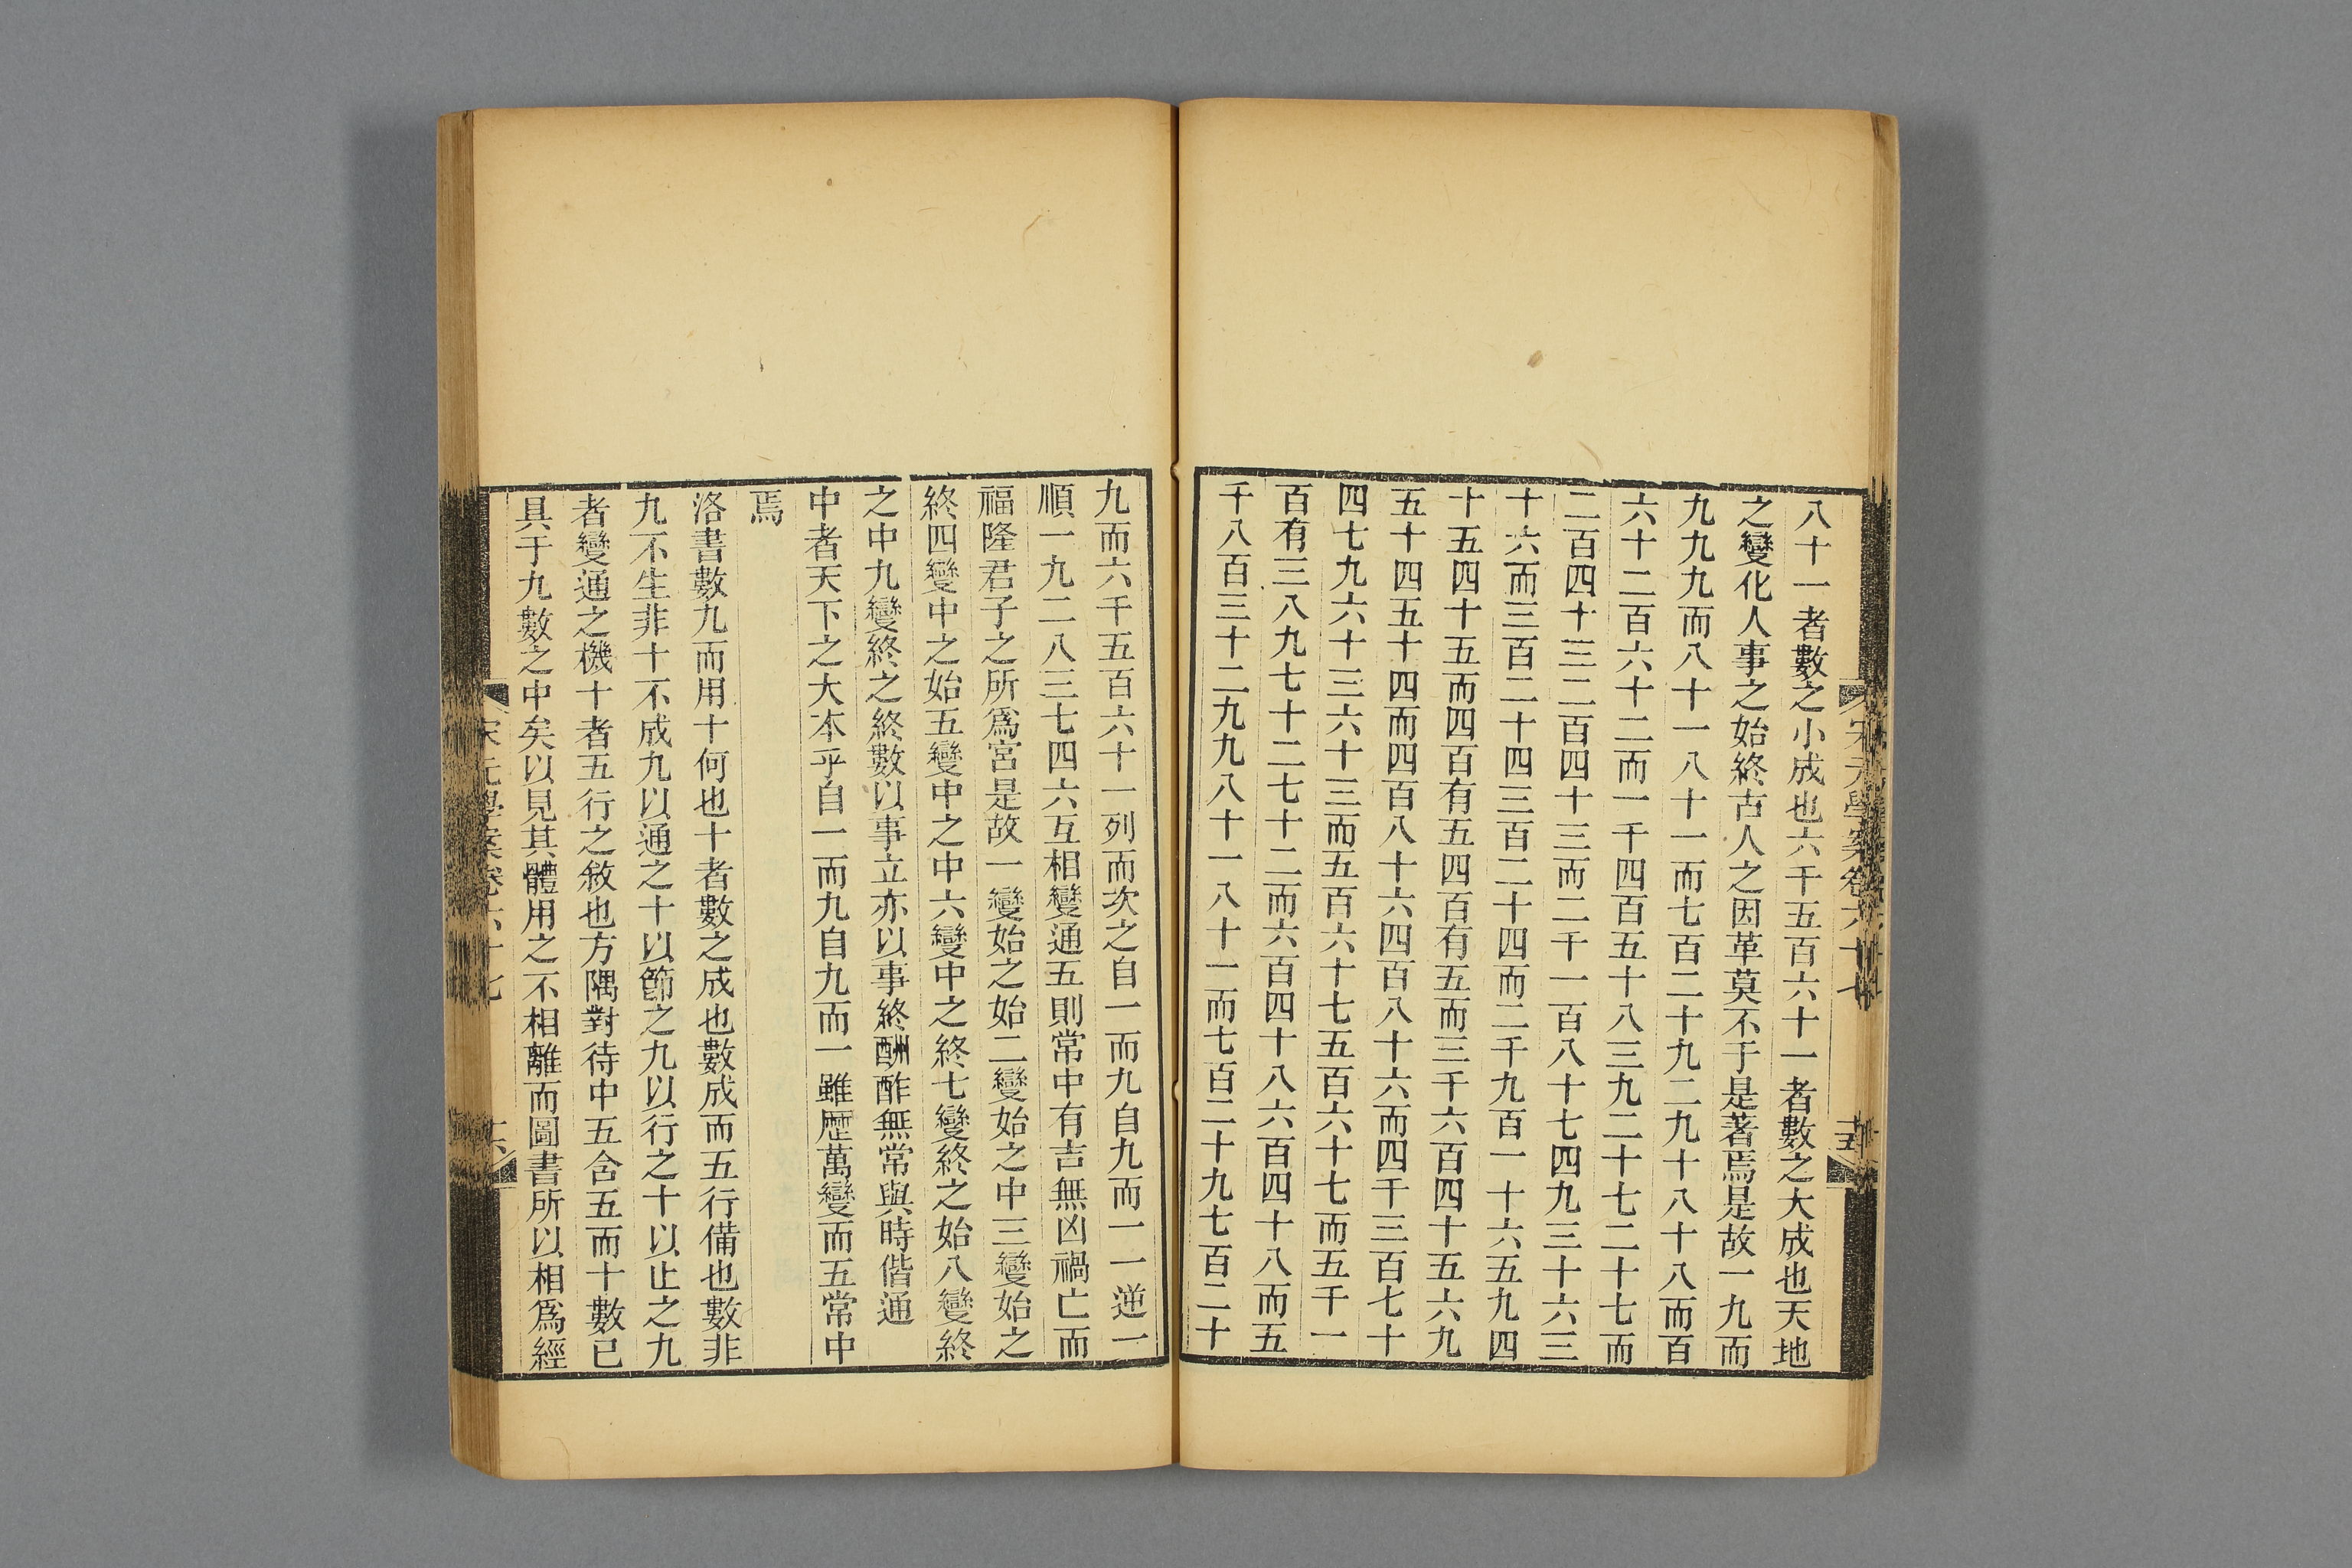 八十一者數之小成也六千五百六十一者數之大成也天地
之變化人事之始終古人之因革莫不于是著焉是故一九而
九九九而八十一八十一而七百二十九二九十八十八而百
六十二百六十二而一千四百五十八三九二十七二十七而
二百四十三二百四十三而二千一百八十七四九三十六三
十六而三百二十四三百二十四而二千九百一十六五九四
十五四十五而四百有五四百有五而三千六百四十五六九
五十四五十四而四百八十六四百八十六而四千三百七十
四七九六十三六十三而五百六十七五百六十七而五千一
百有三八九七十二七十二而六百四十八六百四十八而五
千八百三十二九九八十一八十一而七百二十九七百二十
宋元學案卷六十七
十五
九而六千五百六十一列而次之自一而九自九而一一逆一
順一九二八三七四六互相變通五則常中有吉無凶禍亡而
福隆君子之所爲宮是故一變始之始二變始之中三變始之
終四變中之始五變中之中六變中之終七變終之始八變終
之中九變終之終數以事立亦以事終酬酢無常與時偕通
中者天下之大本乎自一而九自九而一雖歷萬變而五常中
焉
洛書數九而用十何也十者數之成也數成而五行備也數非
九不生非十不成九以通之十以節之九以行之十以止之九
者變通之機十者五行之敘也方隅對待中五含五而十數已
具于九數之中矣以見其體用之不相離而圖書所以相爲經
宋元學案卷六十七
十六